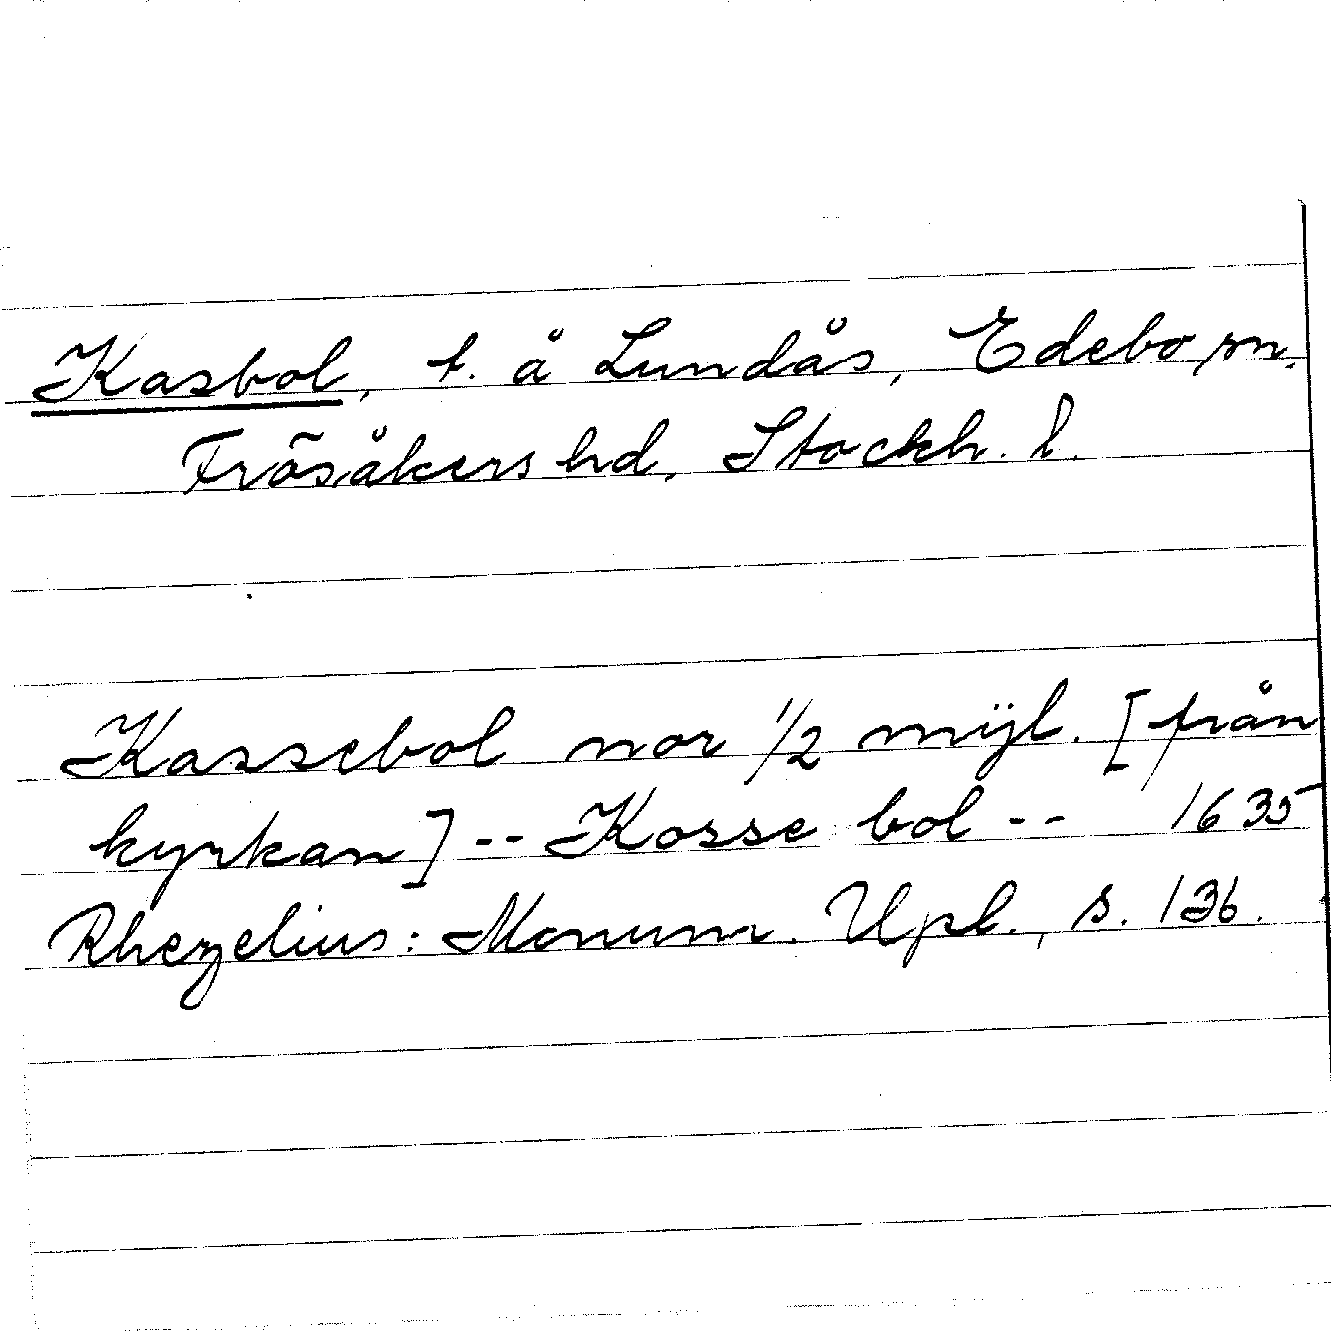 Kasbol, t. å Lundås, Edebo sn.
Frösåkers hd, Stockh. l.
Kassebol nor 1/2 mÿl. [från
kyrkan] -- Kosse bol -- 1635
Rhezelius: Monum. Upl., s. 136.